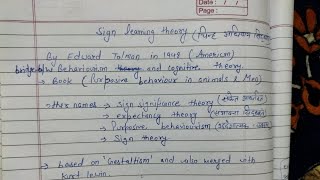 Date : / /
Page :
Sign learning theory (चिन्ह अधिगम सिद्धांत)
By Edward Tolman in 1948 (American)
bridge b/w Behaviourism and cognitive theory.
→ Book (Purposive behaviour in animals & Men)
other names → Sign significance theory
→ expectancy theory
→ Purposive behaviourism
→ Sign theory
→ based on 'Gestaltism' and also merged with
Kurt lewin.